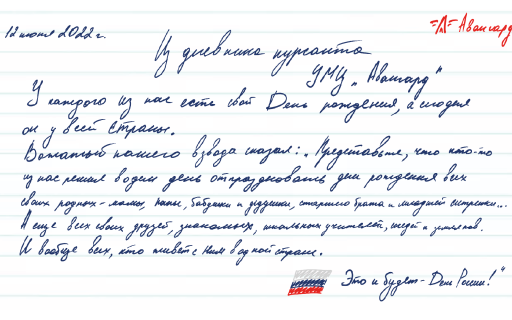 12 июня 2022 г.
=А= Авангард
Из дневника курсанта
УМЦ „Авангард"
У каждого из нас есть свой День рождения, а сегодня
он у всей страны.
Вожатый нашего взвода сказал: „Представьте, что кто-то
из нас решил в один день отпраздновать дни рождения всех
своих родных - мамы, папы, бабушки и дедушки, старшего брата и младшей сестренки...
А еще всех своих друзей, знакомых, школьных учителей, и
И вообще всех, кто живет с ним в одной стране.
Это и будет - День России!"